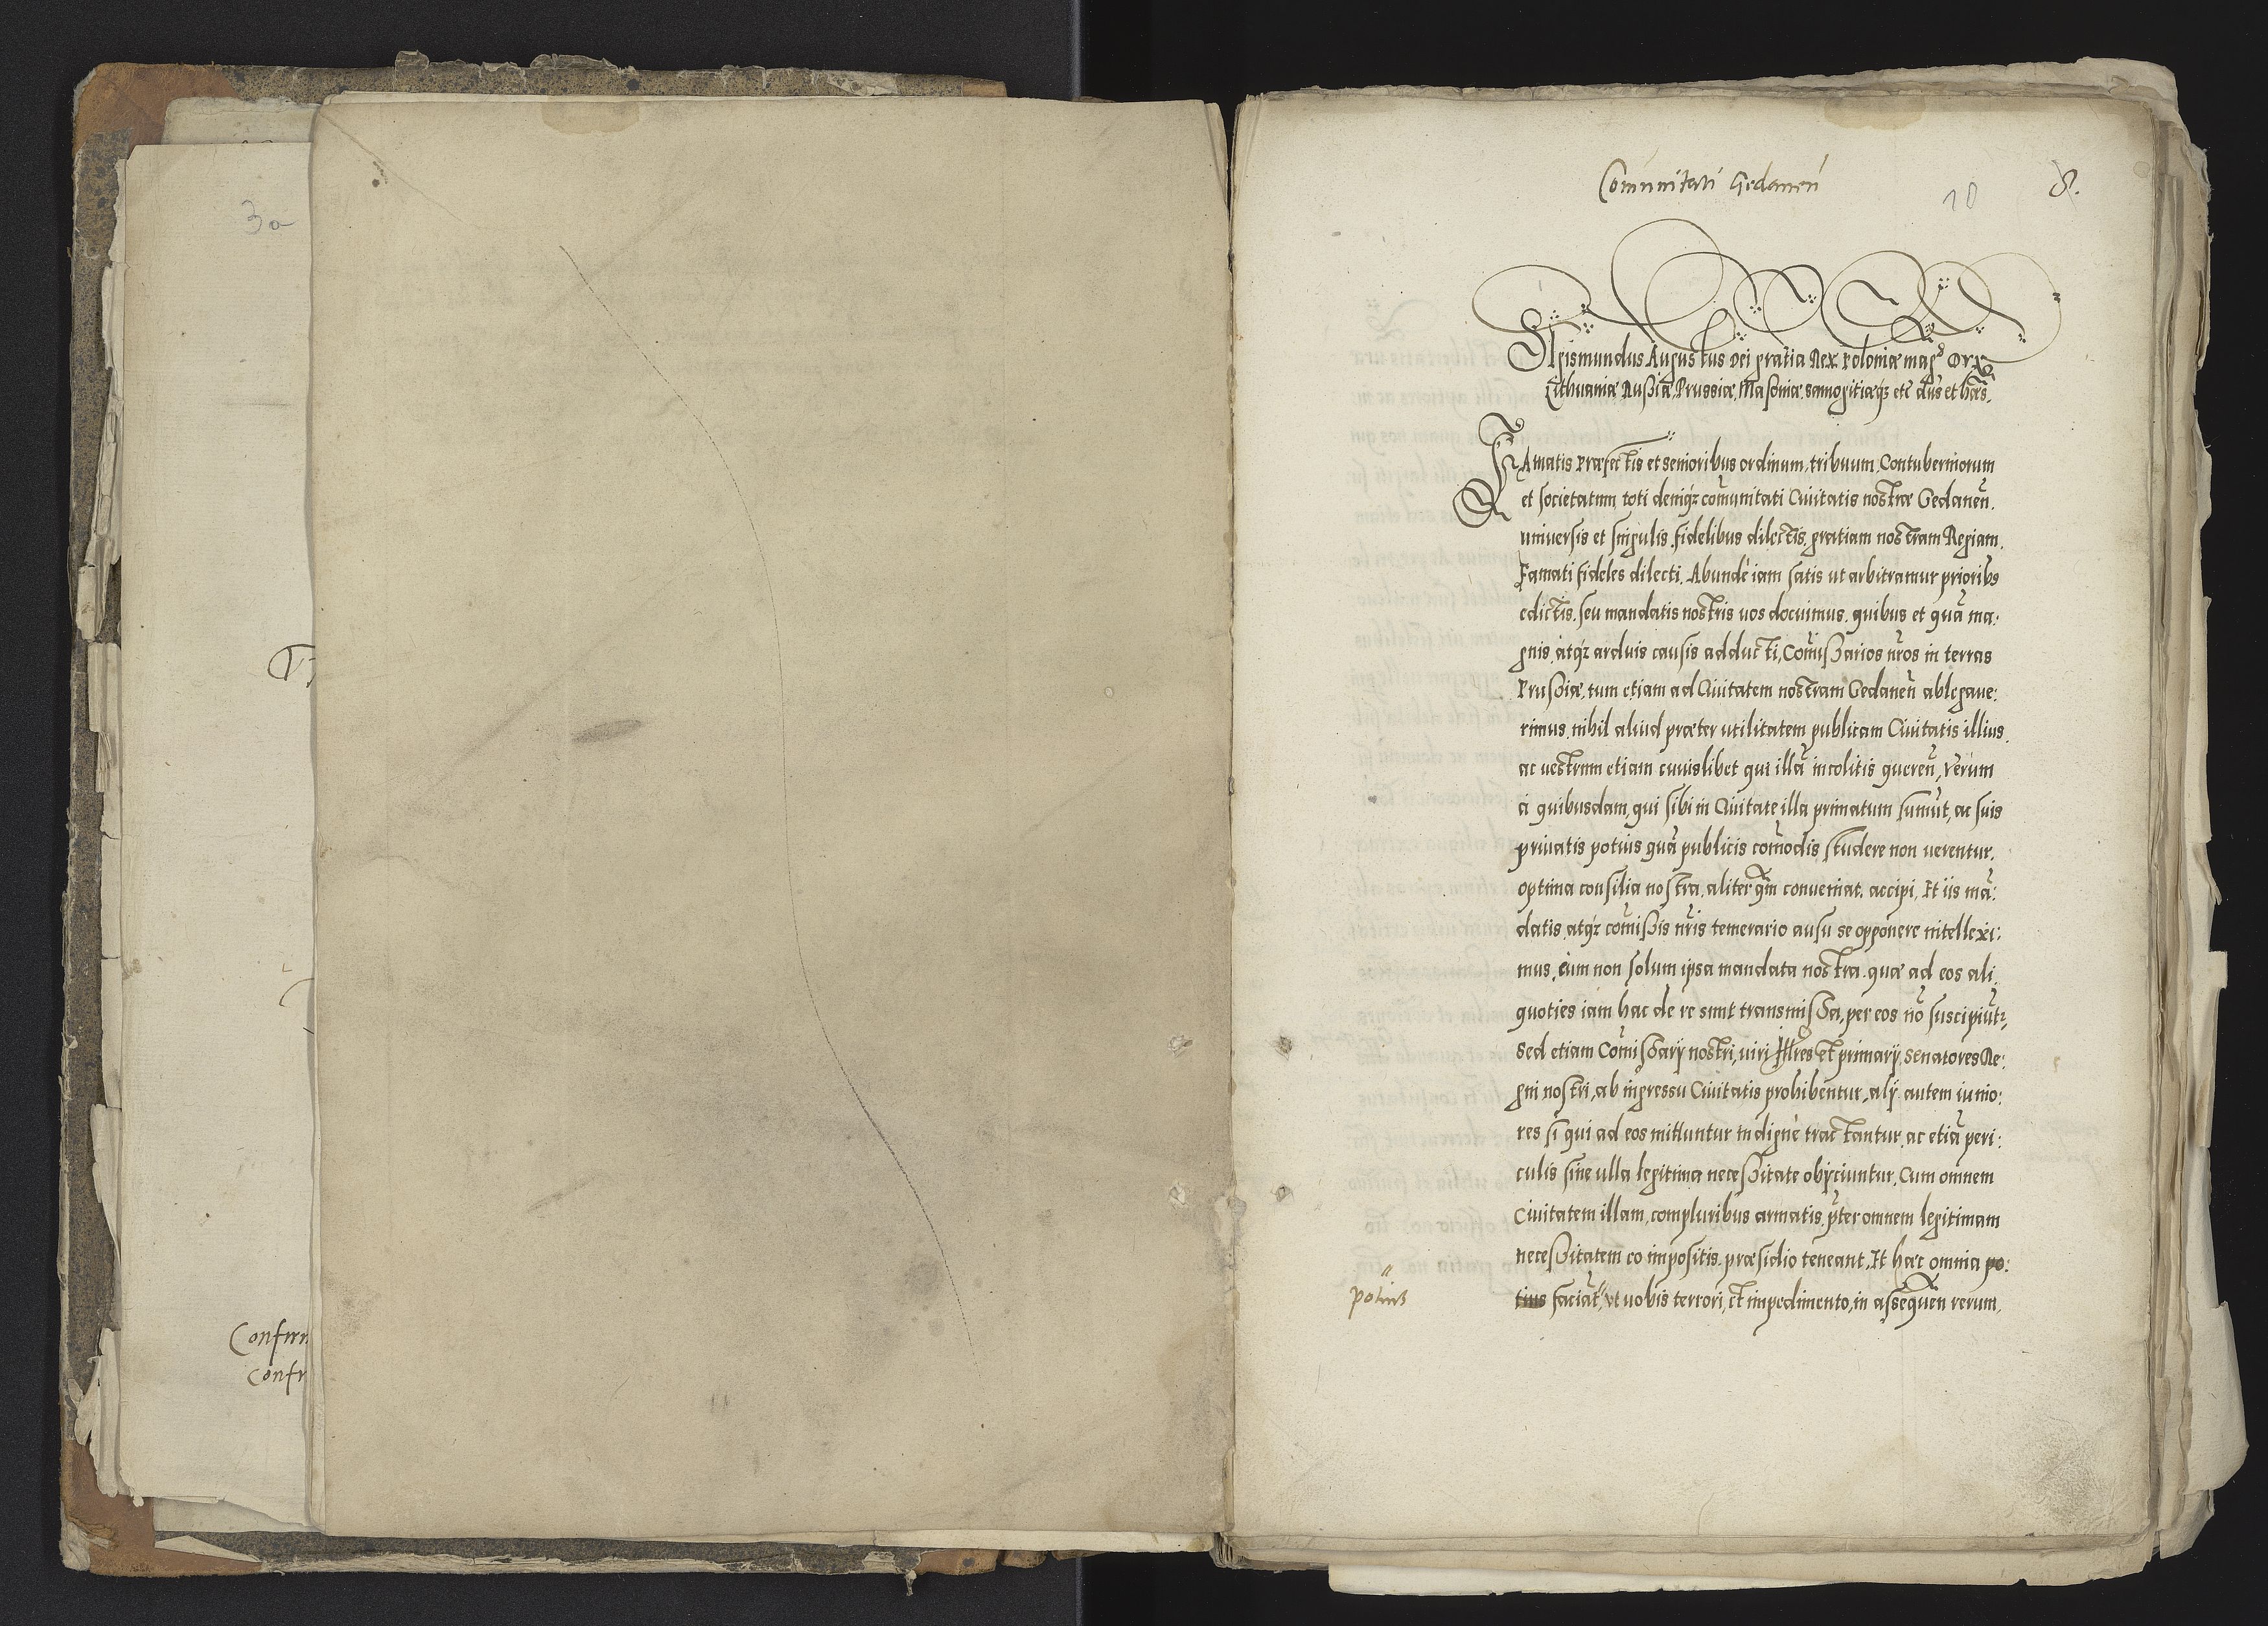 3a
Confirm
Confr
Com̃unitati Gedaneñ
10
8.
Sigismundus Augustus Dei gratia Rex Poloniæ mag⁹ Dux
Lithuaniæ Rußiæ, Prussiæ, Masoviæ, Samogitiæq₃ etc̃ dñs et hæres.
Famatis Præfectis et senioribus ordinum, tribuum, Contuberniorum
et societatum, toti deniq₃ com̃unitati Civitatis nostræ Gedaneñ.
universis et singulis, fidelibus dilectis, gratiam nostram Regiam.
Famati fideles dilecti. Abundè iam satis ut arbitramur prioribus
edictis, seu mandatis nostris vos docuimus, quibus et quã ma:
gnis, atq₃ arduis causis adducti, Com̃ißarios nr̃os in terras
Prußiæ, tum etiam ad Civitatem nostram Gedaneñ ablegave:
rimus, nihil aliud præter utilitatem publicam Civitatis illius,
ac vestrum etiam cuiuslibet qui illã incolitis quereñ, Verum
à quibusdam, qui sibi in Civitate illa primatum sumũt, ac suis
privatis potius quã publicis com̃odis studere non verentur,
optima consilia nostra, aliter qm̃ conveniat, accipi, Et iis mã:
datis, atq₃ com̃ißis nr̃is temerario ausu se opponere intellexi:
mus, cùm non solum ipsa mandata nostra, quæ ad eos ali,
quoties iam hac de re sunt transmißa, per eos nõ suscipiũtr,
Sed etiam Com̃ißarij nostri, viri Illr̃es et primarij, Senatores Re:
gni nostri, ab ingressu Civitatis prohibentur, alij autem iunio:
res si qui ad eos mittuntur indignè tractantur, ac etiã peri:
culis sine ulla legitima neceßitate obijciuntur. Cum omnem
Civitatem illam, compluribus armatis, p̃ter omnem legitimam
neceßitatem eo impositis, præsidio teneant, Et hæc omnia po:
tius faciãt, ut vobis terrori, et impedimento, in assequeñ rerum,
potius